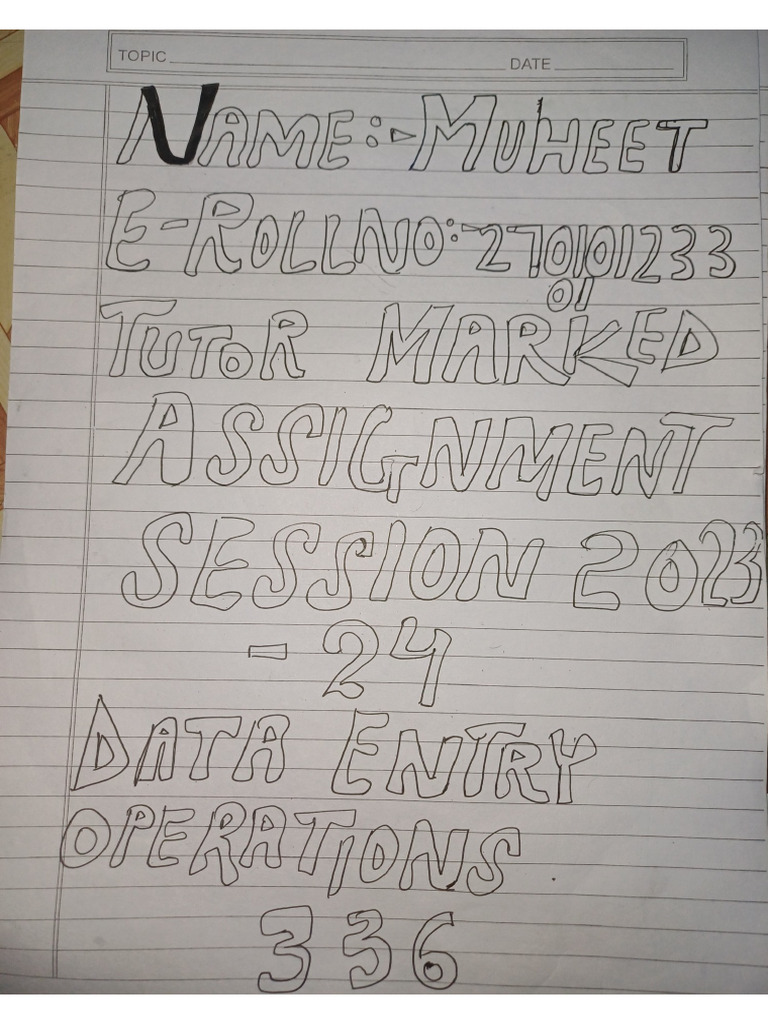 TOPIC DATE
NAME:- MUHEET
E-ROLLNO:-270101233
01
TUTOR MARKED
ASSIGNMENT
SESSION 2023
- 24
DATA ENTRY
OPERATIONS
336